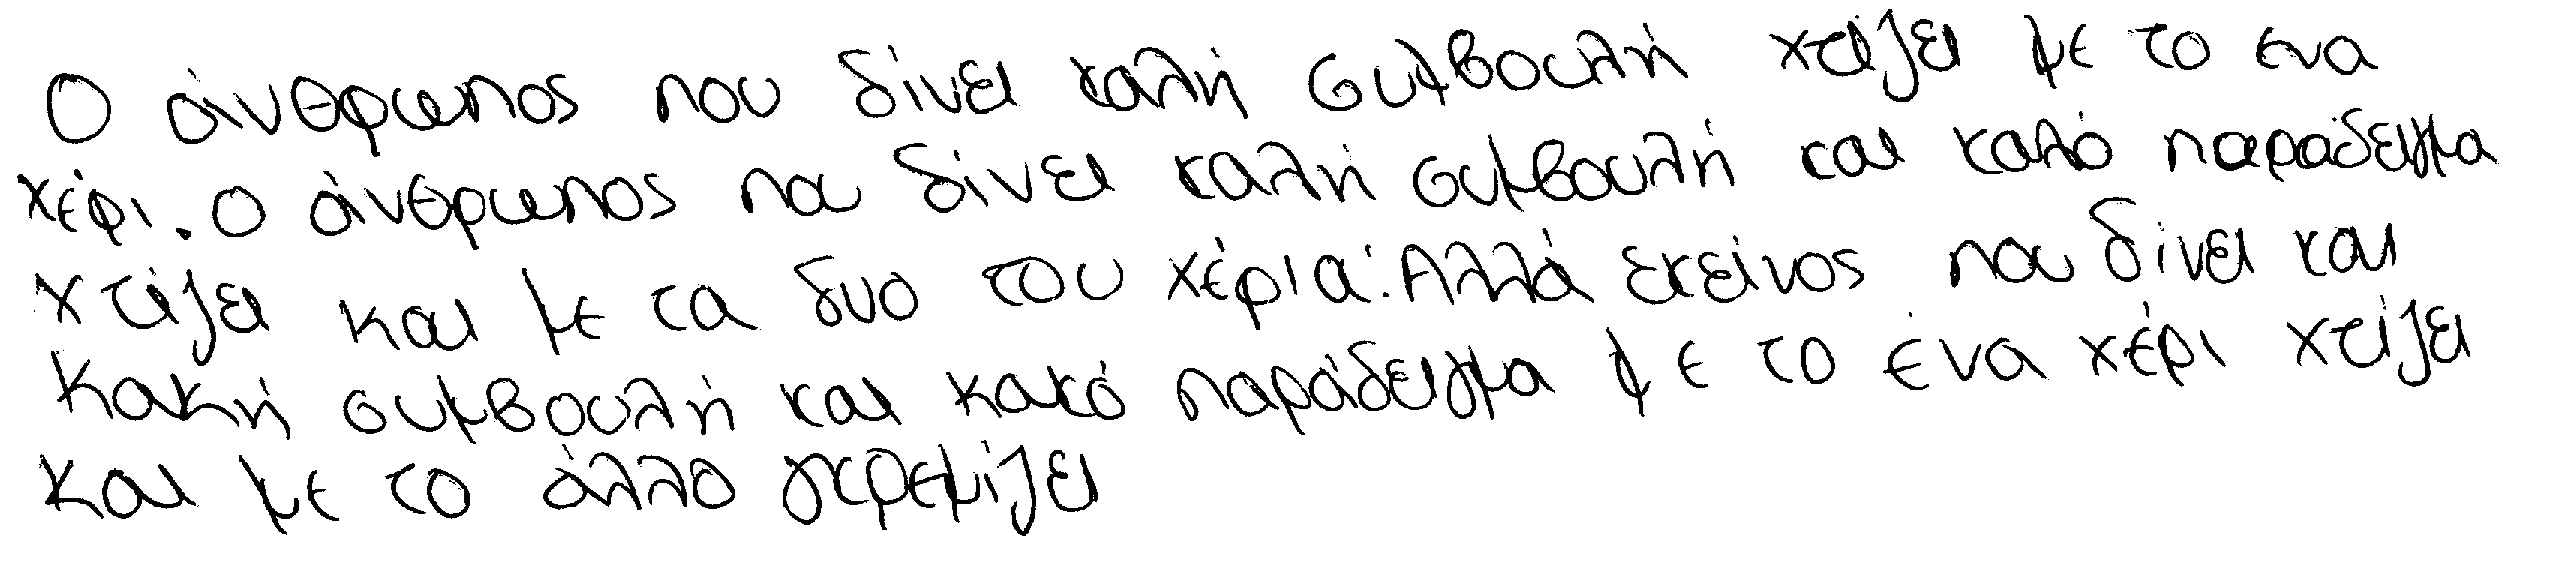 Ο άνθρωπος που δίνει καλή συμβουλή χτίζει με το ενα
χέρι. Ο άνθρωπος που δίνει καλή συμβουλή και καλό παράδειγμα
χτίζει και με τα δυο του χέρια. Αλλά εκείνος που δίνει και
κακή συμβουλή και κακό παράδειγμα με το ένα χέρι χτίζει
και με το άλλο γκρεμίζει